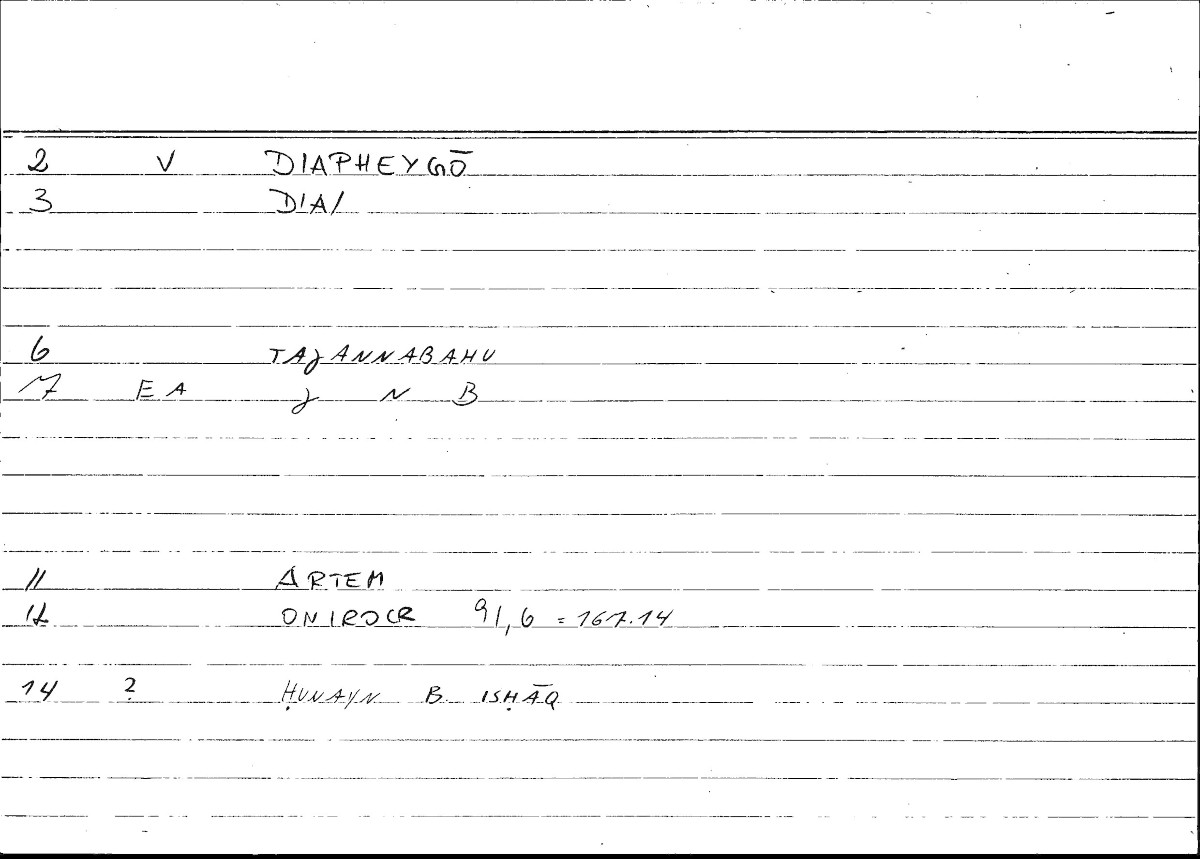 2 V DIAPHEYGŌ
3 DIA/
6 TAJANNABAHU
7 EA J N B
11 ARTEM
12 ONIROCR 91,6 = 167.14
14 ? ḤUNAYN B ISḤĀQ